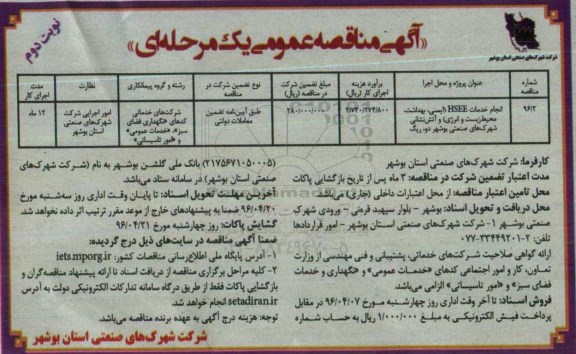 نوبت دوم
«آگهی مناقصه عمومی یک مرحله‌ای»
شرکت شهرک‌های صنعتی استان بوشهر
شماره مناقصه
عنوان پروژه و محل اجرا
برآورد هزینه اجرای کار (ریال)
مبلغ تضمین شرکت در مناقصه (ریال)
نوع تضمین شرکت در مناقصه
رشته و گروه پیمانکاری
نظارت
مدت اجرای کار
۹۶/۲
انجام خدمات HSEE (ایمنی، بهداشت، محیط‌زیست و انرژی) و آتش‌نشانی شهرک‌های صنعتی بوشهر دو، ریگ
طبق آیین‌نامه تضمین معاملات دولتی
شرکت‌های خدماتی کدهای «نگهداری فضای سبز»، «خدمات عمومی» و «امور تاسیساتی»
امور اجرایی شرکت شهرک‌های صنعتی استان بوشهر
۱۲ ماه
کارفرما: شرکت شهرک‌های صنعتی استان بوشهر
مدت اعتبار تضمین شرکت در مناقصه: ۳ ماه پس از تاریخ بازگشایی پاکات
محل تامین اعتبار مناقصه: از محل اعتبارات داخلی (جاری) می‌باشد.
محل دریافت و تحویل اسناد: بوشهر - بلوار سپهبد قرنی - ورودی شهرک
صنعتی بوشهر ۱- شرکت شهرک‌های صنعتی استان بوشهر - امور قراردادها
تلفن: ۲-۳۳۴۴۹۲۰۱-۰۷۷
ارائه گواهی صلاحیت شرکت‌های خدماتی، پشتیبانی و فنی مهندسی از وزارت
تعاون، کار و امور اجتماعی کدهای «خدمات عمومی» و «نگهداری و خدمات
فضای سبز» و «امور تاسیساتی» الزامی می‌باشد.
فروش اسناد: تا آخر وقت اداری روز چهارشنبه مورخ ۹۶/۰۴/۰۷ در مقابل
پرداخت فیش الکترونیکی به مبلغ ۱/۰۰۰/۰۰۰ ریال به حساب شماره
(۲۱۷۵۶۷۱۰۵۰۰۰۵) بانک ملی گلشن بوشهر به نام (شرکت شهرک‌های
صنعتی استان بوشهر) در سامانه ستاد می‌باشد.
آخرین مهلت تحویل اسناد: تا پایان وقت اداری روز سه‌شنبه مورخ
۹۶/۰۴/۲۰ ضمنا به پیشنهادهای خارج از موعد مقرر ترتیب اثر داده نخواهد شد.
گشایش پاکات: روز چهارشنبه مورخ ۹۶/۰۴/۲۱
ضمنا آگهی مناقصه در سایت‌های ذیل درج گردیده:
۱- آدرس پایگاه ملی اطلاع‌رسانی مناقصات کشور: iets.mporg.ir
۲- کلیه مراحل برگزاری مناقصه از دریافت اسناد تا ارائه پیشنهاد مناقصه‌گران و
بازگشایی پاکات فقط از طریق درگاه سامانه تدارکات الکترونیکی دولت به آدرس
setadiran.ir انجام خواهد شد.
توجه: هزینه درج آگهی به عهده برنده مناقصه می‌باشد.
شرکت شهرک‌های صنعتی استان بوشهر